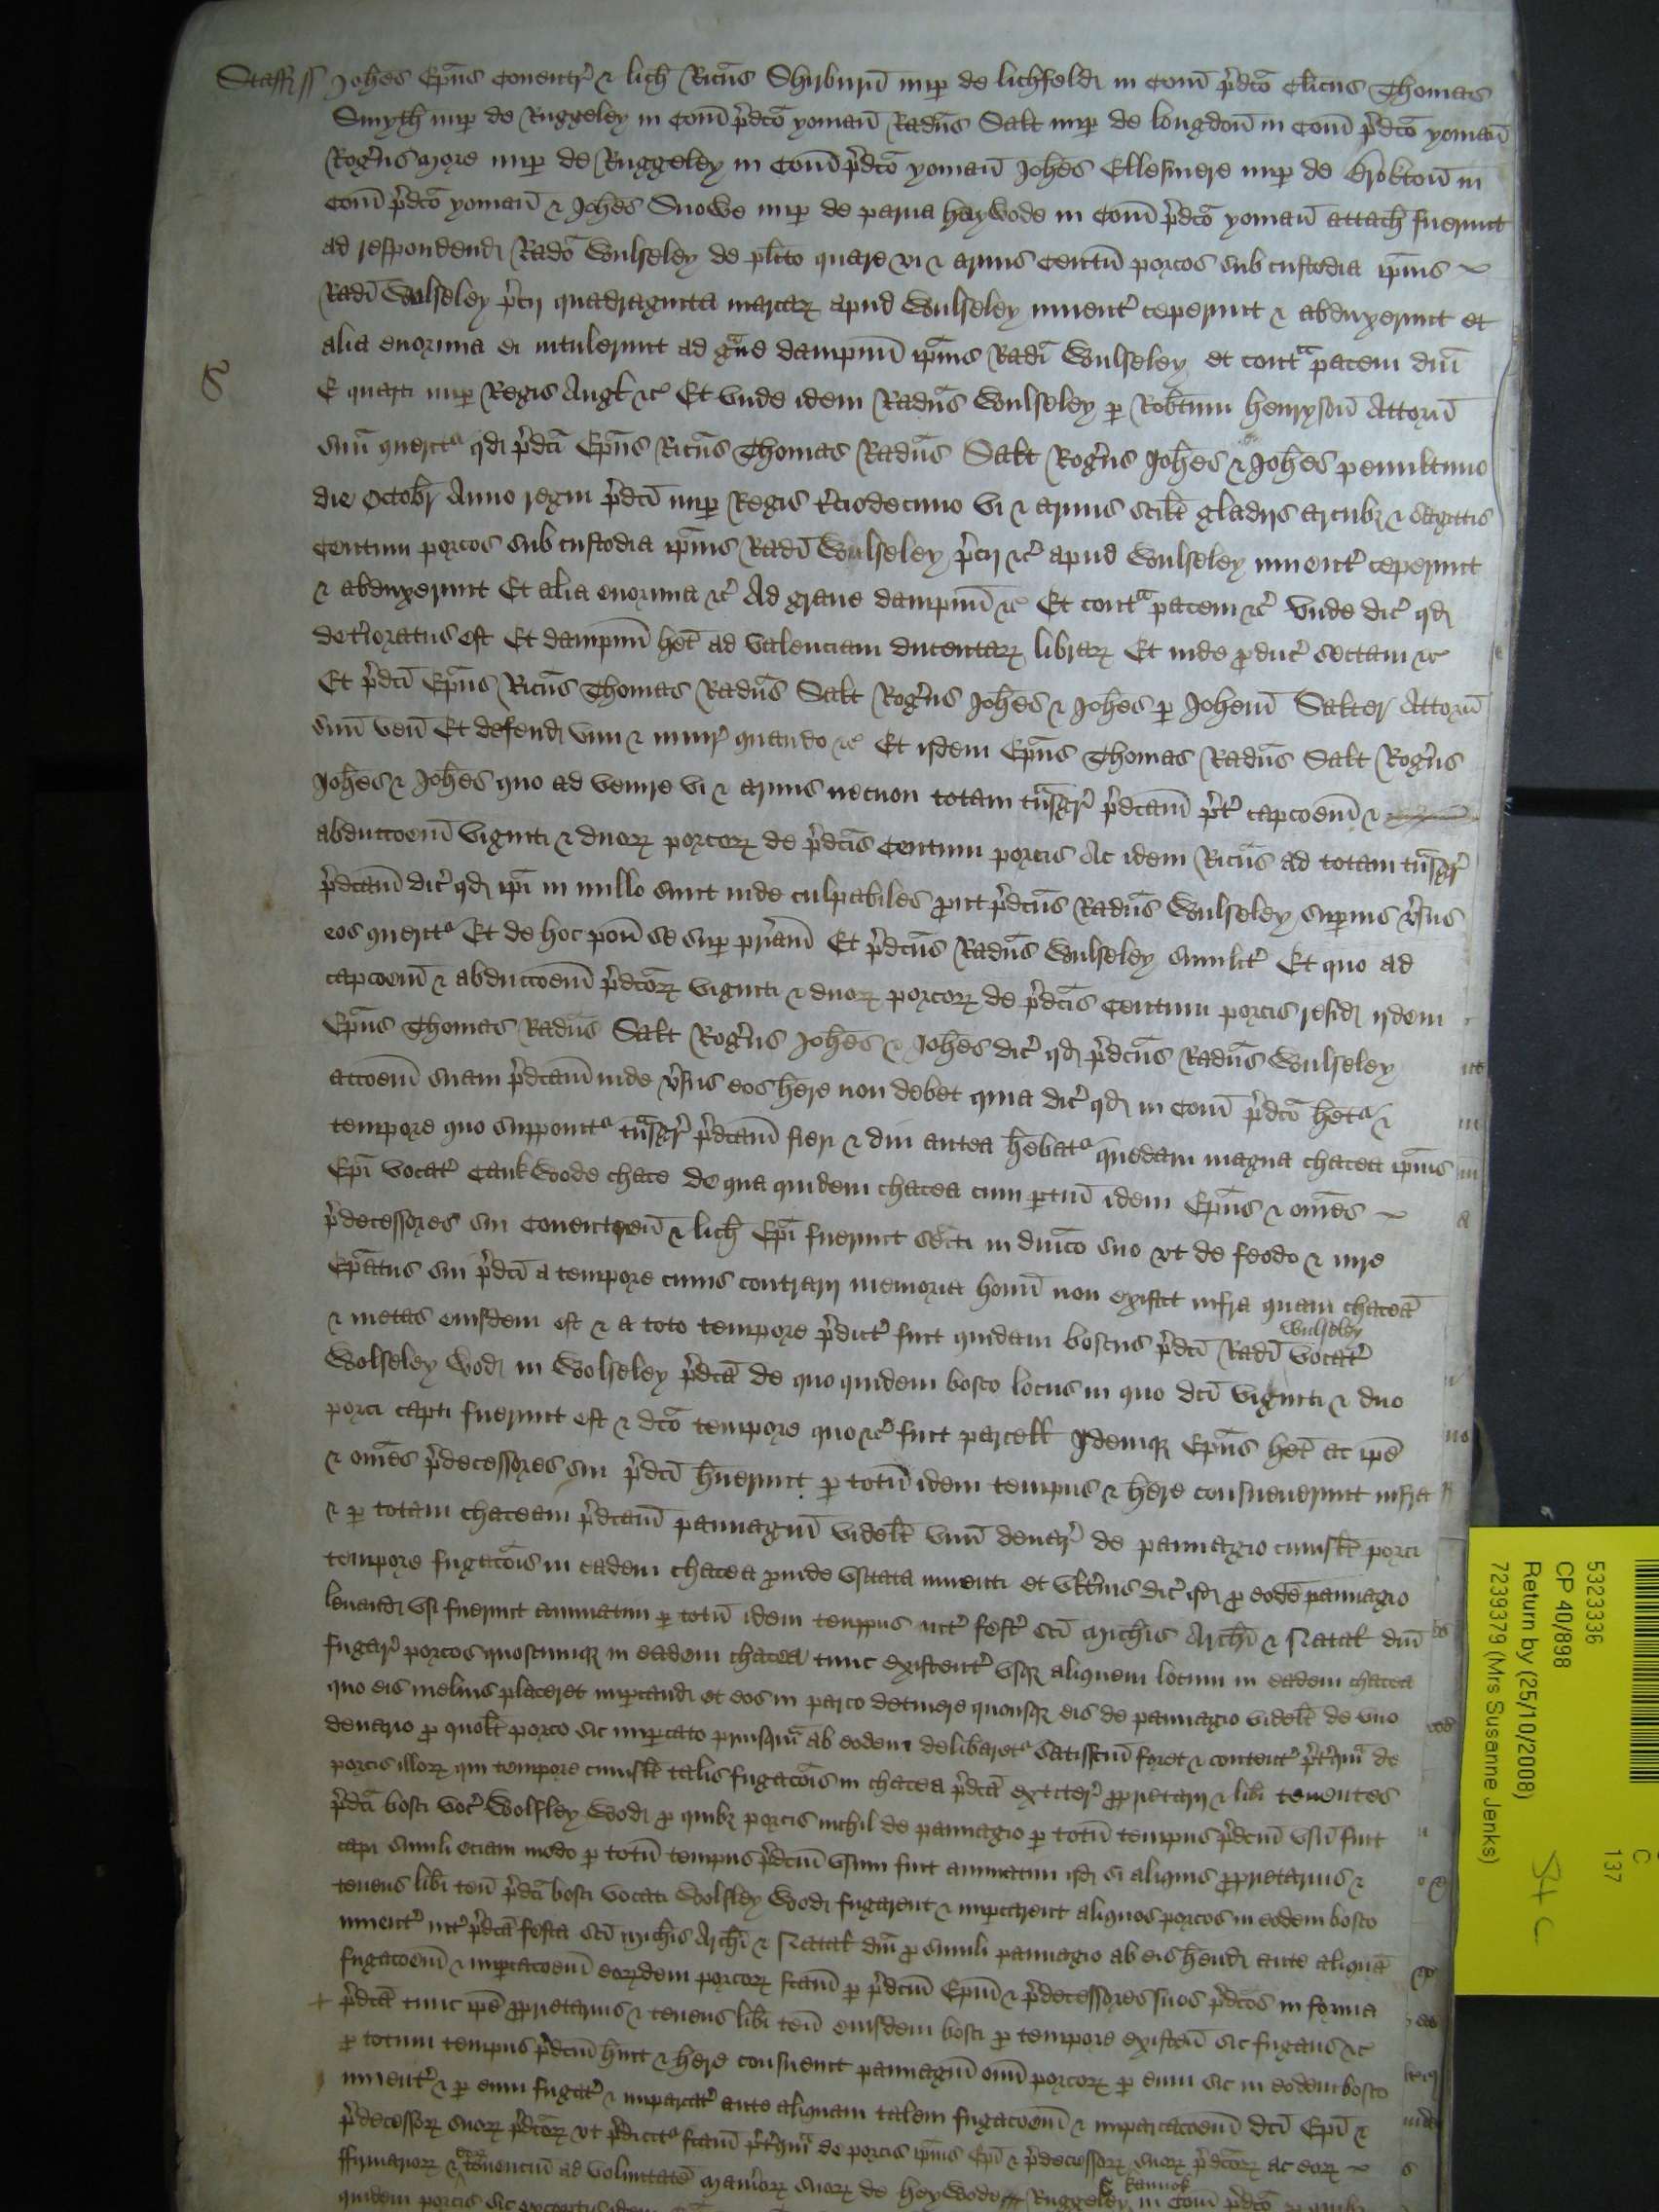 Staff ss Joħes Ep̄us Coventr̃ & Lich Ric̃us Shirburn̄ nup̱ de Lichfeld in Com̄ p̃dc̄o Cl̃icus Thomas
Smyth nup̱ de Ruggeley in Com̄ p̃dc̄o yoman̄ Rad̄us Salt nup̱ de Longdon̄ in Com̄ p̃dc̄o yoman̄
Rog̃us More nup̱ de Ruggeley in Com̄ p̃dc̄o yoman̄ Joħes Ellesmere nup̱ de Brokton̄ in
Com̄ p̃dc̄o yoman̄ & Joħes Snowe nup̱ de parva Heywode in Com̄ p̃dc̄o yoman̄ attach fuerunt
ad respondend Rad̄o Wulseley de pl̃ito quare vi & armis Centū porcos sub custodia ip̄ius
Rad̄i Wulseley p̃cij quadraginta marcaꝝ apud Wulseley invent̃ ceperunt & abduxerunt et
alia enormia ei intulerunt ad g̃ve dampnū ip̄ius Rad̄i Wulseley et cont̃ pacem dn̄i
E quarti nup̱ Regis Angl̃ &c̃ Et unde idem Rad̄us Wulseley p̱ Rob̃tum Henryson̄ Attorn̄
suū querit̃ qd p̃dc̄i Ep̄us Ric̃us Thomas Rad̄us Salt Rog̃us Joħes & Joħes penultimo
die Octobr̃ Anno regni p̃dc̄i nup̱ Regis t̃ciodecimo vi & armis scil̃t gladijs arcubȝ & sagittis
Centum porcos sub custodia ip̄ius Rad̄i Wulseley p̃cij &c̃ apud Wulseley invent̃ ceperunt
& abduxerunt Et alia enormia &c̃ Ad grave dampnū &c̃ Et cont̃ pacem &c̃ Unde dic̃ qd
det̃ioratus est Et dampnū ħet ad valenciam ducentaꝝ libraꝝ Et inde p̱duc̃ sectam &c̃
Et p̃dc̄i Ep̄us Ric̃us Thomas Rad̄us Salt Rog̃us Joħes & Joħes p̱ Joħem Salter Attorn̄
suū ven̄ Et defend vim & iniur̃ quando &c̃ Et ijdem Ep̄us Thomas Rad̄us Salt Rog̃us
Joħes & Joħes quo ad venire vi & armis necnon totam tñsgr̃ p̃dc̄am p̃t̃ capc̄oem &
abducc̄oem viginti & duoꝝ porcoꝝ de p̃dc̄is Centum porcis Ac idem Ric̃us ad totam tñsgr̃
p̃dc̄am dic̃ qd ip̄i in nullo sunt inde culpabiles p̱ut p̃dc̄us Rad̄us Wulseley sup̱ius ṽsus
eos querit̃ Et de hoc pon̄ se sup̱ pr̃iam Et p̃dc̄us Rad̄us Wulseley similit̃ Et quo ad
capc̄oem & abducc̄oem p̃dc̄oꝝ viginti & duoꝝ porcoꝝ de p̃dc̄is Centum porcis resid ijdem
Ep̄us Thomas Rad̄us Salt Rog̃us Joħes & Joħes dic̃ qd p̃dc̄us Rad̄us Wulseley
acc̄oem suam p̃dc̄am inde ṽsus eos ħere non debet quia dic̃ qd in Com̄ p̃dc̄o ħet̃ &
tempore quo supponit̃ tñsgr̃ p̃dc̄am fieri & diu antea ħebat̃ quedam magna chacea ip̄ius
Ep̄i vocat̃ Cankwode chace de qua quidem chacea cum p̱tin̄ idem Ep̄us & om̄es
p̃decessores sui Coventren̄ & Lich Ep̄i fuerunt seiti in dn̄ico suo ut de feodo & iure
Ep̄atus sui p̃dc̄i a tempore cuius contrarij memoria hom̄ non existit infra quam chaceā
& metas eiusdem est & a toto tempore p̃dict̃ fuit quidam boscus p̃dc̄i Rad̄i Wulseley vocat̃
Wolseley Wod in Wolseley p̃dc̄a de quo quidem bosco locus in quo dc̄i viginti & duo
porci capti fuerunt est & dc̄o tempore quo &c̃ fuit parcell̃ Idemqȝ Ep̄us ħet ac ip̄e
& om̄es p̃decessores sui p̃dc̄i ħuerunt p̱ totū idem tempus & ħere consueverunt infra
& p̱ totam chaceam p̃dc̄am pannagiū videl̃t unū denar̃ de pannagio cuiusl̃t porci
tempore fugac̄ois in eadem chacea p̱inde usitata inventi et ult̃ius dic̃ qd p̱ eodē pannagio
levand usi fuerunt annuatim p̱ totū idem tempus int̃ fest̃ sc̄i Mich̄is Arch̄i & Natal̃ dn̄i
fugar̃ porcos quoscumqȝ in eadem chacea tunc existent̃ usqȝ aliquem locum in eadem chacea
quo eis melius placeret imp̱cand et eos in parco detinere quousqȝ eis de pannagio videl̃t de uno
denario p̱ quol̃t porco sic imp̱cato priusqũ ab eodem delib̃aret̃ satisfc̄m foret & content̃ p̃t̃qũ de
porcis illoꝝ qui tempore cuiusl̃t talis fugac̄ois in chacea p̃dc̄a extiter̃ p̱prietarij & lib̃i tenentes
p̃dc̄i bosci voc̃ Wolsley Wod p̱ quibȝ porcis nichil de pannagio p̱ totū tempus p̃dc̄m usū fuit
capi simili eciam modo p̱ totū tempus p̃dc̄m usum fuit annuatim qd si aliquis p̱prietarius &
tenens lib̃i ten̄ p̃dc̄i bosci vocati Wolsley Wod fugarent & imp̱carent aliquos porcos in eodem bosco
invent̃ int̃ p̃dc̄a festa sc̄i Mich̄is Arch̄i & Natal̃ dn̄i p̱ simili pannagio ab eis ħend ante aliquā
fugac̄oem & imp̱cac̄oem eoꝝdem porcoꝝ fc̄am p̱ p̃dc̄m Ep̄m & p̃decessores suos p̃dc̄os in forma
p̃dc̄a tunc ip̄e p̱prietarius & tenens lib̃i ten̄ eiusdem bosci p̱ tempore existen̄ sic fugans &c̃
p̱ totum tempus p̃dc̄m ħuit & ħere consuevit pannagiū om̄i porcoꝝ p̱ eum sic in eodem bosco
invent̃ & p̱ eum fugat̃ & imparcat̃ ante aliquam talem fugac̄oem & imparcac̄oem dc̄i Ep̄i &
p̃decessoꝝ suoꝝ p̃dc̄oꝝ ut p̃dicit̃ fc̄am p̃t̃qũ de porcis ip̄ius Ep̄i & p̃decessoꝝ suoꝝ p̃dc̄oꝝ ac eoꝝ
ffirmarioꝝ & tenenciū ad voluntatē Mañioꝝ suoꝝ de Heywode Ruggeley & Kannok in Com̄ p̃dc̄o p̱ quibȝ
quidem porcis sic exceptis idem
5323336
CP 40/898
Return by (25/10/2008)
7239379 (Mrs Susanne Jenks)
C
137